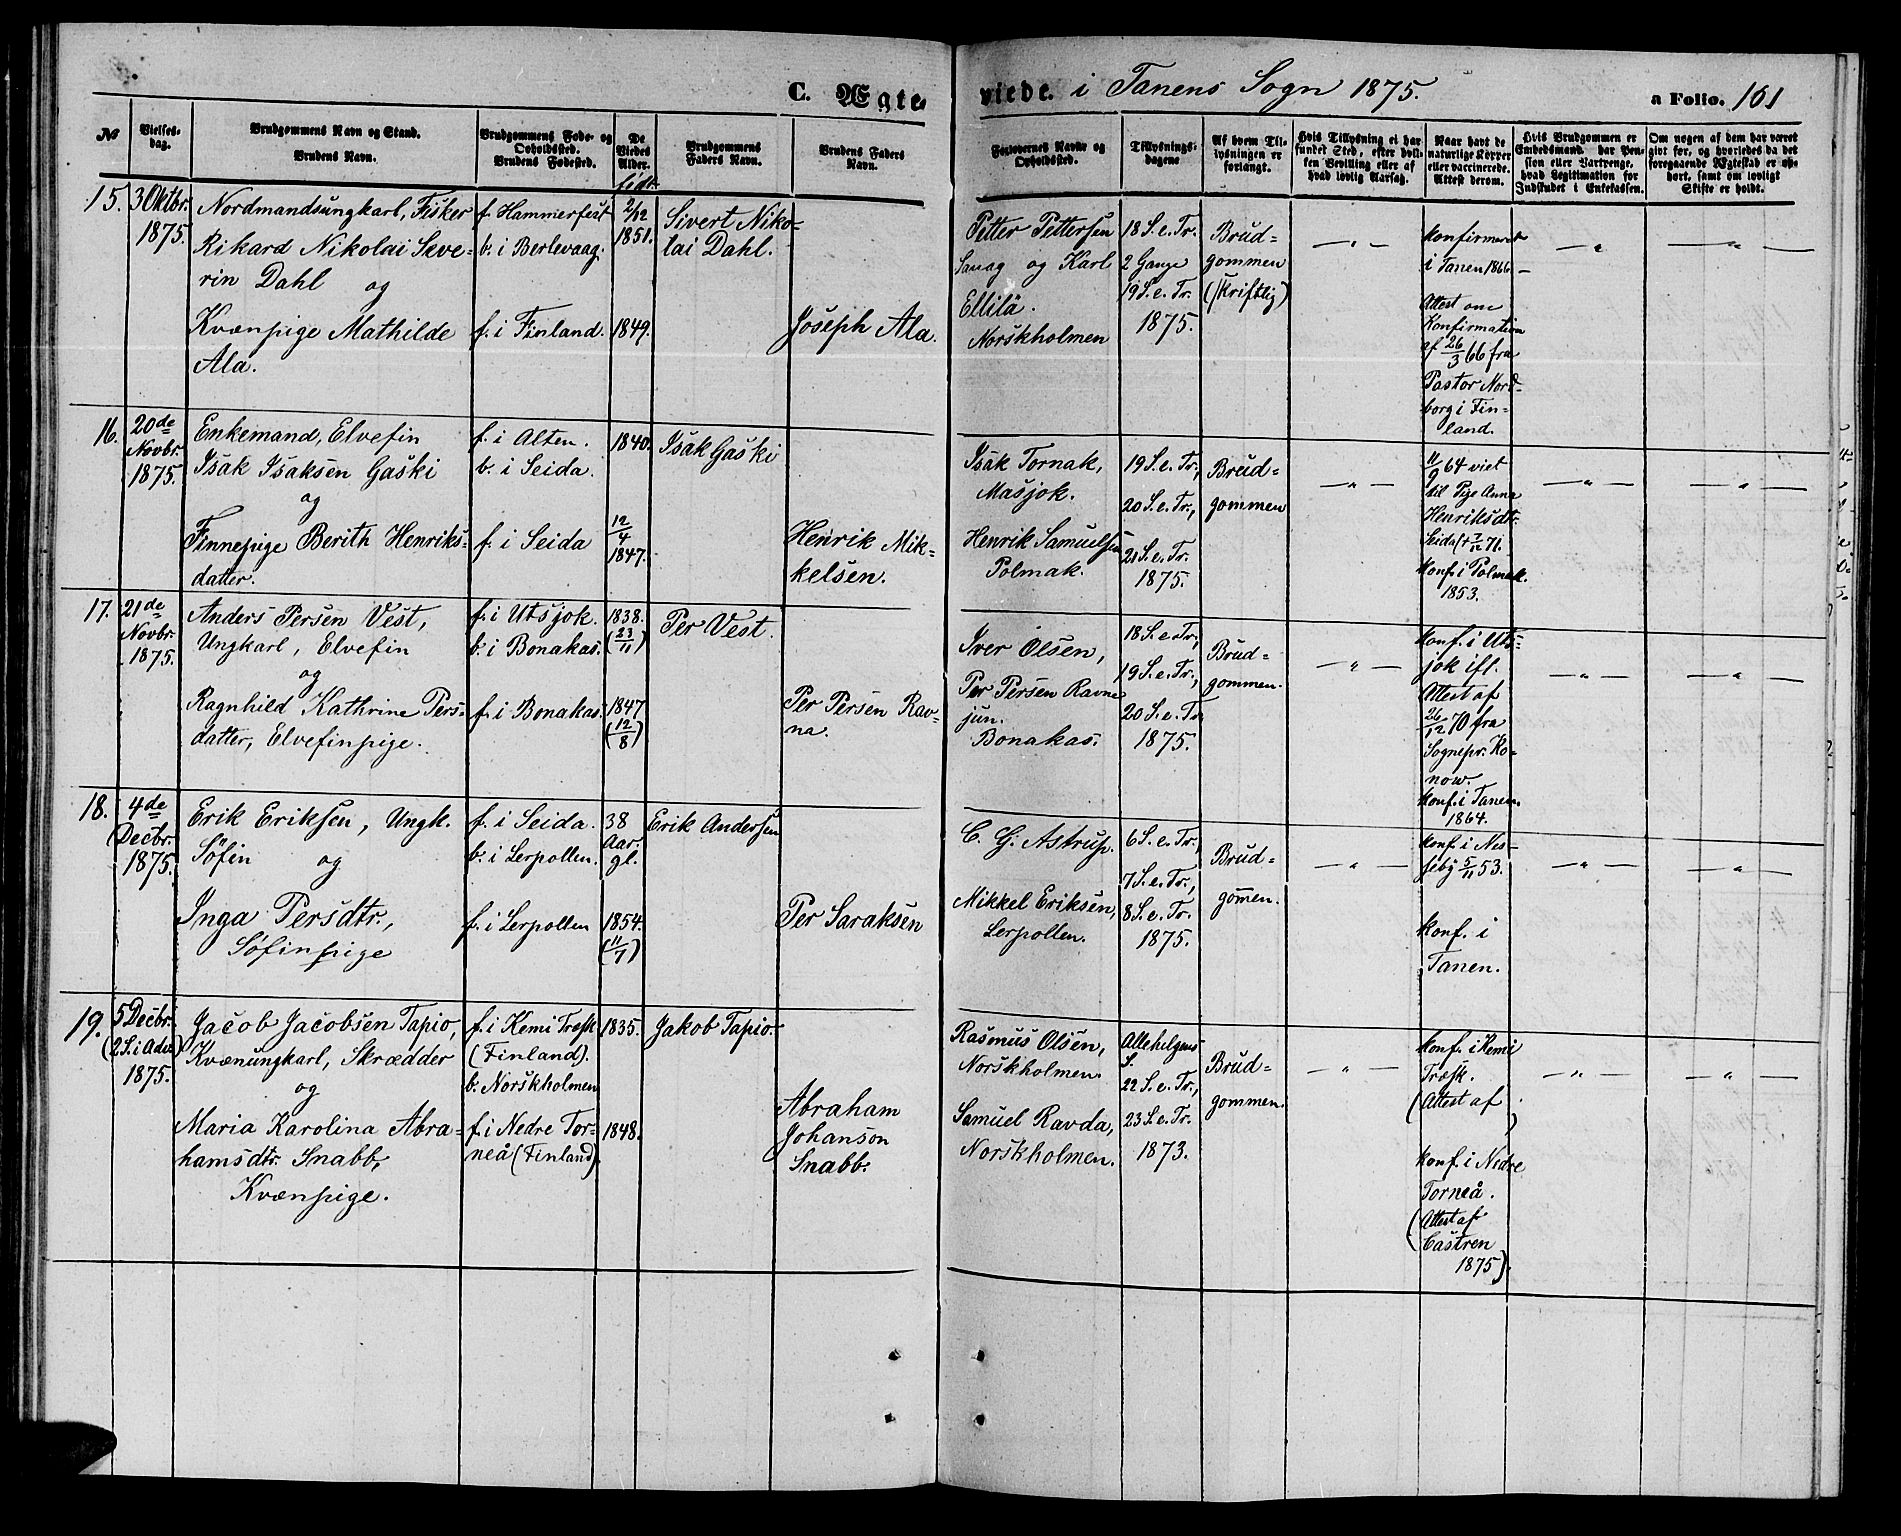 C. Ægteviede. i Tanens Sogn 1875.
a Folio. 161
№
Vielses-
dag.
Brudgommens Navn og Stand.
Brudens Navn.
Brudgommens Føde- og
Opholdssted.
Brudens Fødested.
De
Viedes
Alder.
født.
Brudgommens
Faders Navn.
Brudens Faders
Navn.
Forlovernes Navne og
Opholdssted.
Tillysnings-
dagene
Af hvem Til-
lysningen er
forlangt.
Hvis Tillysning ei har
fundet Sted, efter hvil-
ken Bevilling eller af
hvad lovlig Aarsag.
Naar havt de
naturlige Kopper
eller vaccinerede.
Attest derom.
Hvis Brudgommen er
Embedsmand, har Pen-
sion eller Vartpenge,
hvad Legitimation for
Indskudet i Enkekassen.
Om nogen af dem har været
gift før, og hvorledes da det
foregaaende Ægteskab er op-
hørt, samt om lovligt
Skifte er holdt.
15.
3 Oktbr.
1875.
Nordmandsungkarl, Fisker
Rikard Nikolai Seve-
rin Dahl og
Kvænpige Mathilde
Ala.
f. Hammerfest
b. i Berlevaag.
f. i Finland.
2/12
1851.
1849.
Sivert Niko-
lai Dahl.
Joseph Ala.
Petter Pettersen
og Karl
Ellilä.
Norskholmen
18 S. e. Tr.
2 Gange
19 S. e. Tr.
1875.
Brud-
gommen
(skriftlig)
— " —
Konfirmeret
i Tanen 1866 —
Attest om
Konfirmation
af 26/3 66 fra
Pastor Nord-
borg i Fin-
land.
— " —
— " —
16.
20de
Novbr.
1875.
Enkemand, Elvefin
Isak Isaksen Gaski
og
Finnepige Berith Henriks-
datter.
f. i Alten.
b. i Seida.
f. i Seida
1840.
12/4
1847.
Isak Gaski
Henrik Mik-
kelsen.
Isak Tornak,
Masjok.
Henrik Samuelsen
Polmak.
19 S. e. Tr.,
20 S. e. Tr.,
21 S. e. Tr.
1875.
Brud-
gommen
— " —
11/9 64 viet
til Pige Anna
Henriksdtr.
Seida († 7/12 71.
Konf. i Polmak.
1853.
— " —
— " —
17.
21de
Novbr.
1875.
Anders Persen Vest,
Ungkarl, Elvefin
og
Ragnhild Kathrine Pers-
datter, Elvefinpige.
f. i Utsjok.
b. i Bonakas.
f. i Bonakas.
1838.
(23/11)
1847
(12/8)
Per Vest.
Per Persen Rav-
na.
Iver Olsen,
Per Persen Ravne
jun.
Bonakas.
18 S. e. Tr.,
19 S. e. Tr.,
20 S. e. Tr.
1875.
Brud-
gommen.
— " —
Konf. i Uts-
jok ifl.
Attest af
26/12 70 fra
Sognepr. Ko-
now.
Konf. i Tanen.
1864.
— " —
— " —
18.
4de
Decbr.
1875.
Erik Eriksen, Ungk.
Søfin og
Inga Persdtr.,
Søfinpige
f. i Seida.
b. i Lerpollen.
f. i Lerpollen
38
Aar.
gl.
1854.
(11/7)
Erik Andersen
Per Saraksen
C. G. Astrup.
Mikkel Eriksen,
Lerpollen.
6 S. e. Tr.,
7 S. e. Tr.,
8 S. e. Tr.
1875.
Brud-
gom̄en.
— " —
Konf. i Nes-
seby 5/11 53.
Konf. i
Tanen.
— " —
— " —
19.
5 Decbr.
(2 S. i Adv.)
1875.
Jacob Jacobsen Tapio,
Kvænungkarl, Skrædder
og
Maria Karolina Abra-
hamsdtr. Snabb,
Kvænpige.
f. i Kemi Træsk
(Finland).
b. Norskholmen
f. i Nedre Tor-
neå (Finland).
1835.
1848.
Jakob Tapio
Abraham
Johanson
Snabb.
Rasmus Olsen,
Norskholmen.
Samuel Ravda,
Norskholmen.
Allehelgens
S.
22 S. e. Tr.,
23 S. e. Tr.
1873.
Brud-
gommen.
— " —
Konf. i Kemi
Træsk.
(Attest af )
Konf. i Nedre
Torneå.
(Attest af
Castren
1875).
— " —
— " —